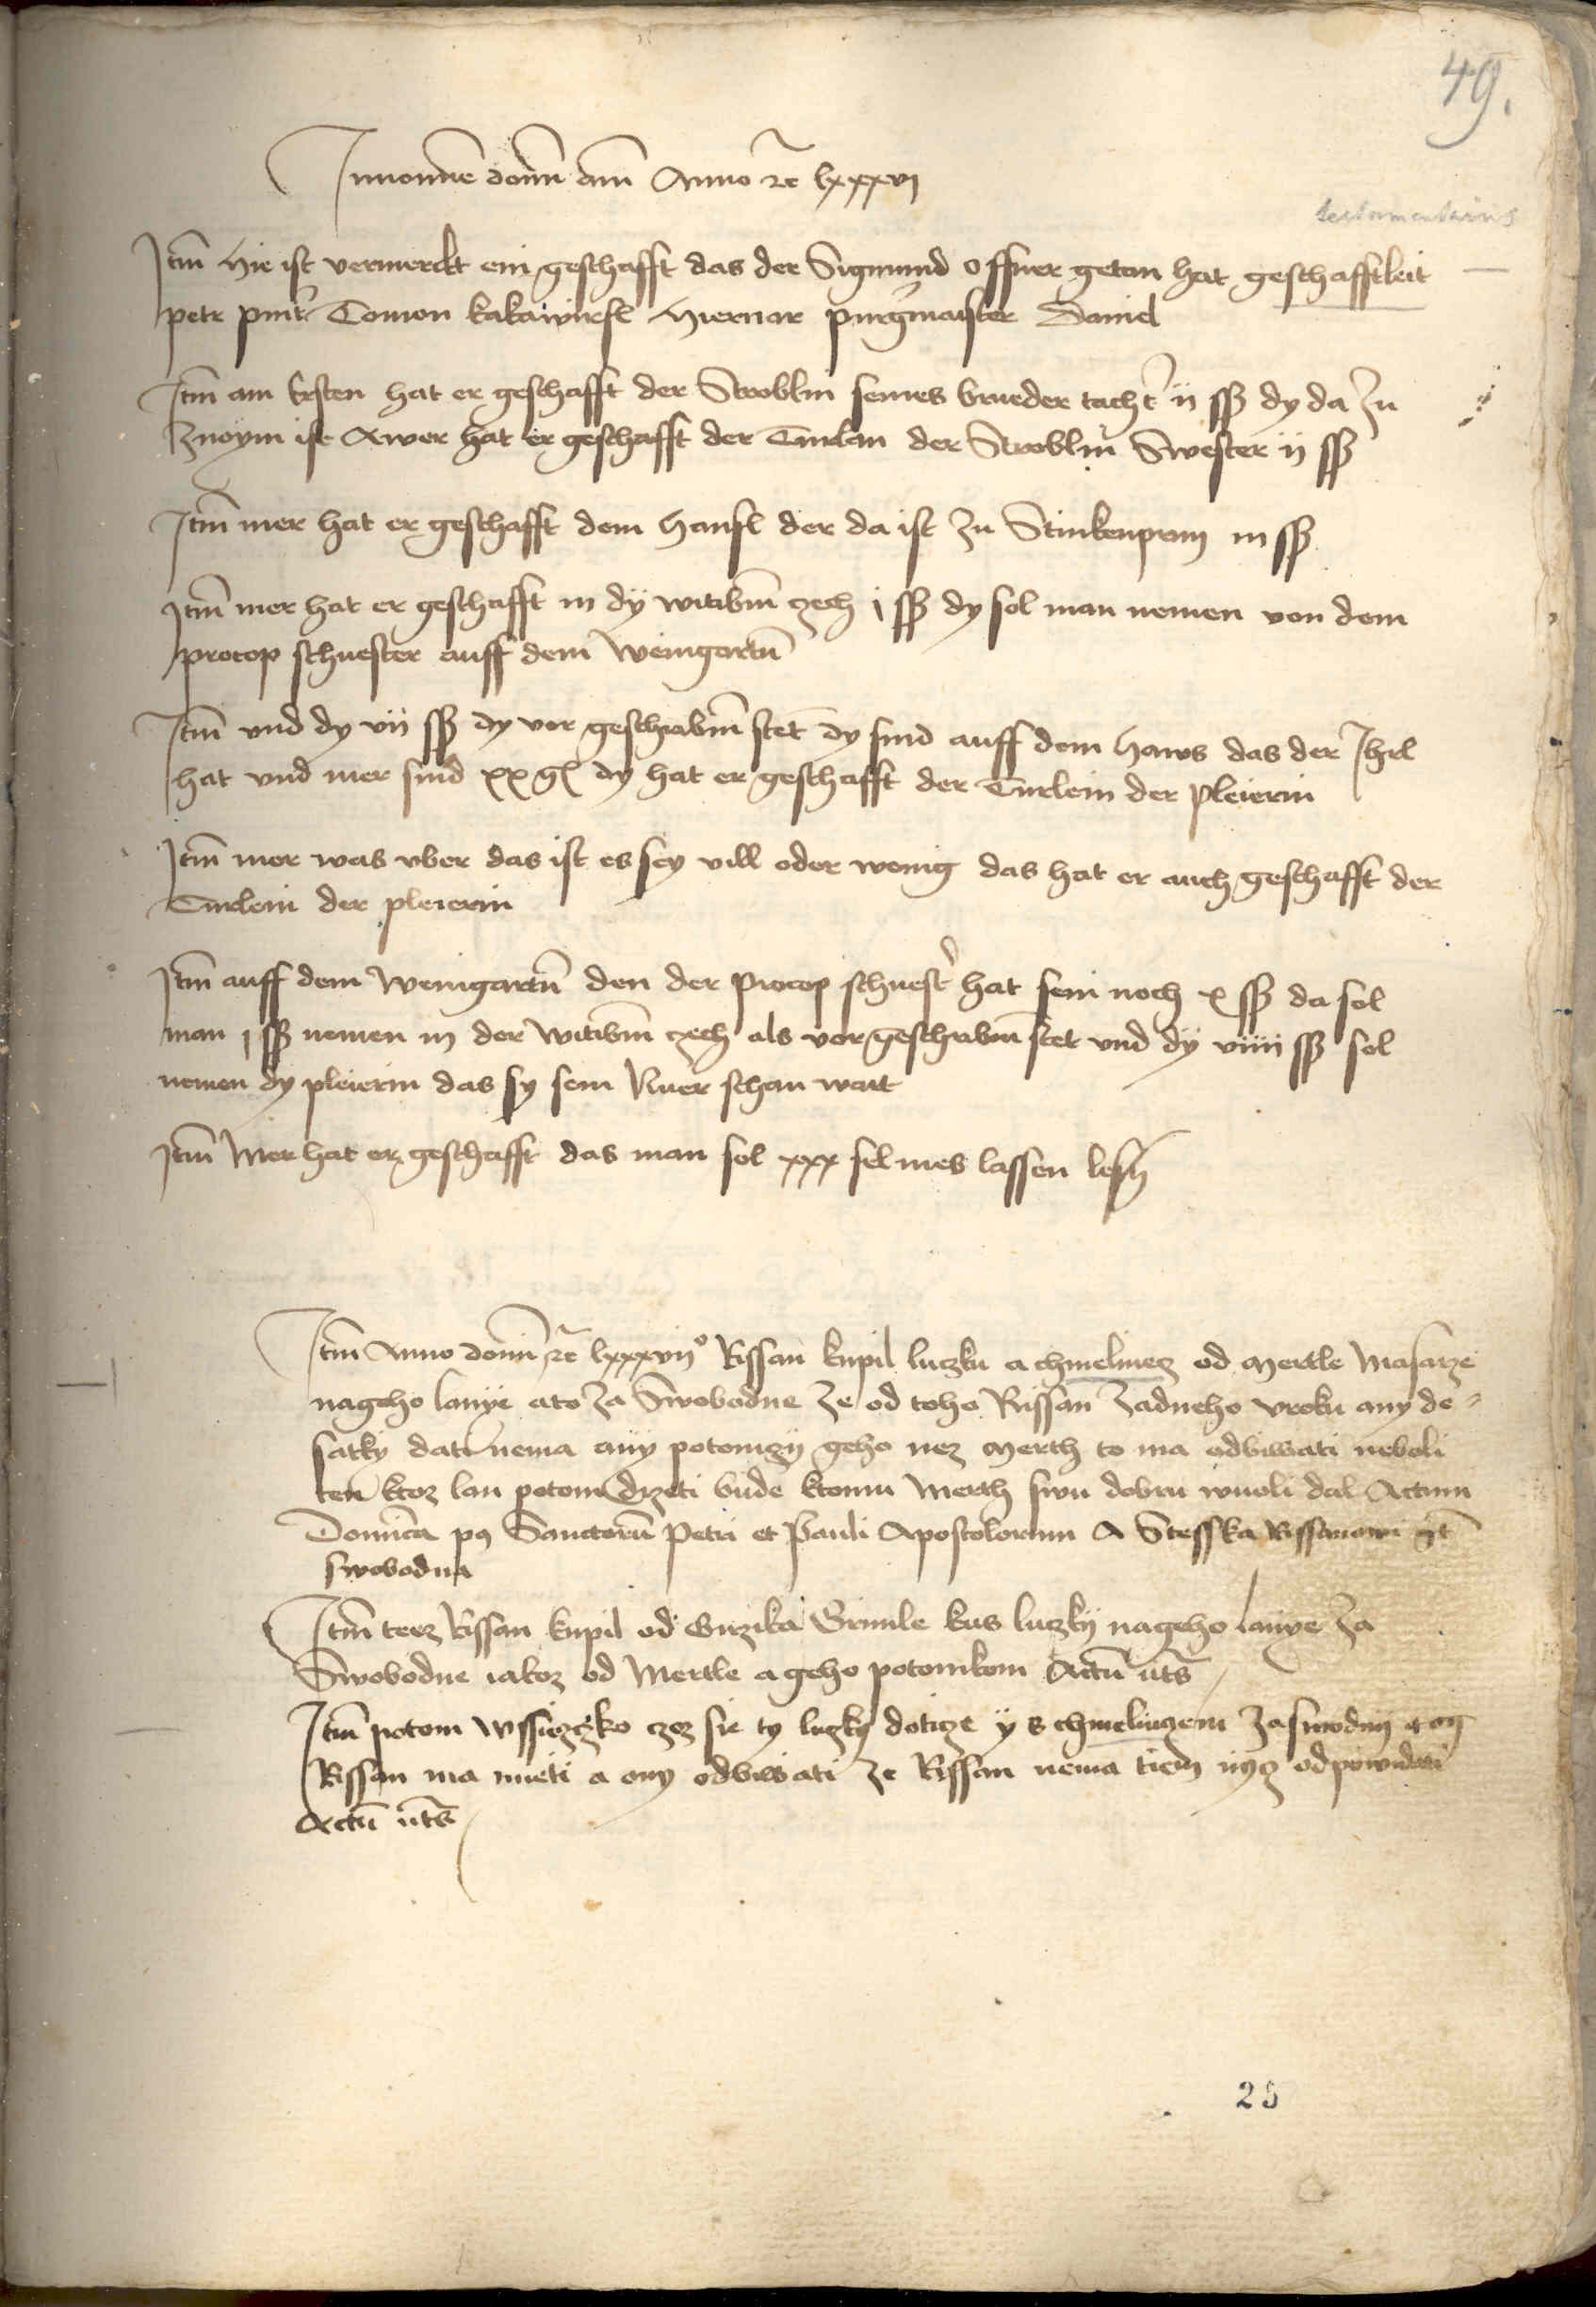 49.
Innomine domini amen Anno rc lxxxvj
testamentarius
Itm hie ist vermerckt ein geschafft das der Sigmund offner getan hat geschafftleit
petr pintr Tomon kakawurfl hiernar purgmaister Daniel
Itm am Ersten hat er geschafft der Stroblin seines brueder tacht ij ss dy da zu
znoym ist Awer hat er geschafft der Turlan der Stroblin Swester ij ss
Itm mer hat er geschafft dem Hansl der da ist zu Stinkenprun iij ss
Itm mer hat er geschafft in dy witibm zech j ss dy sol man nemen von dem
procop schuester auff dem Weingartn
Itm vnd dy vij ss dy vor geschribm stet dy sind auff dem Haws das der Ihel
hat vnd mer sind xx gl dy hat er geschafft der Turlein der Pleierin
Itm mer was vber das ist es sey vill oder wenig das hat er auch geschafft der
Turlein der pleierin
Itm auff dem Weingartn den der Procop schuestr hat sein noch x ss da sol
man j ss nemen in der Witibm zech als vorgeschribm stet vnd dy viiij ss sol
nemen dy pleierin das sy sein schan wart
Itm Mer hat er geschafft das man sol xxx sel mes lassen lesn
Itm Anno domini rc lxxxvijo Rissan kupil luczku a chmelniecz od Mertle Masarze
nageho lanye ato za Swobodne ze od toho Rissan zadneho vroku any de-
satky dati nema any potomczy geho nez Merth to ma odbiwati neboli
ten ktoz lan potom drzeti bude ktomu Merth swu dobru wuoli dal Actum
Dominica post Sanctorum Petri et Pauli Apostolorum A Stesska Rissanowi gt
swobodna
Itm teez Rissan kupil od Girzika Grimle kus luczky nageho lanye za
Swobodne iakoz od Mertle a geho potomkom Actum uts
Itm potom wssieczko czoz sie ty luczky doticze y s chmelniczem za swodny
Rissan ma mieti a ony odbiwati ze Rissan nema tiem nycz odpowidati
Actum uts
25